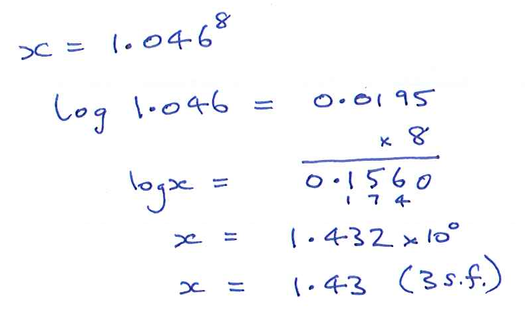 x = 1.046⁸
log 1.046 = 0.0195
× 8
log x = 0.1560
1 7 4
x = 1.432 × 10⁰
x = 1.43 (3 s.f.)